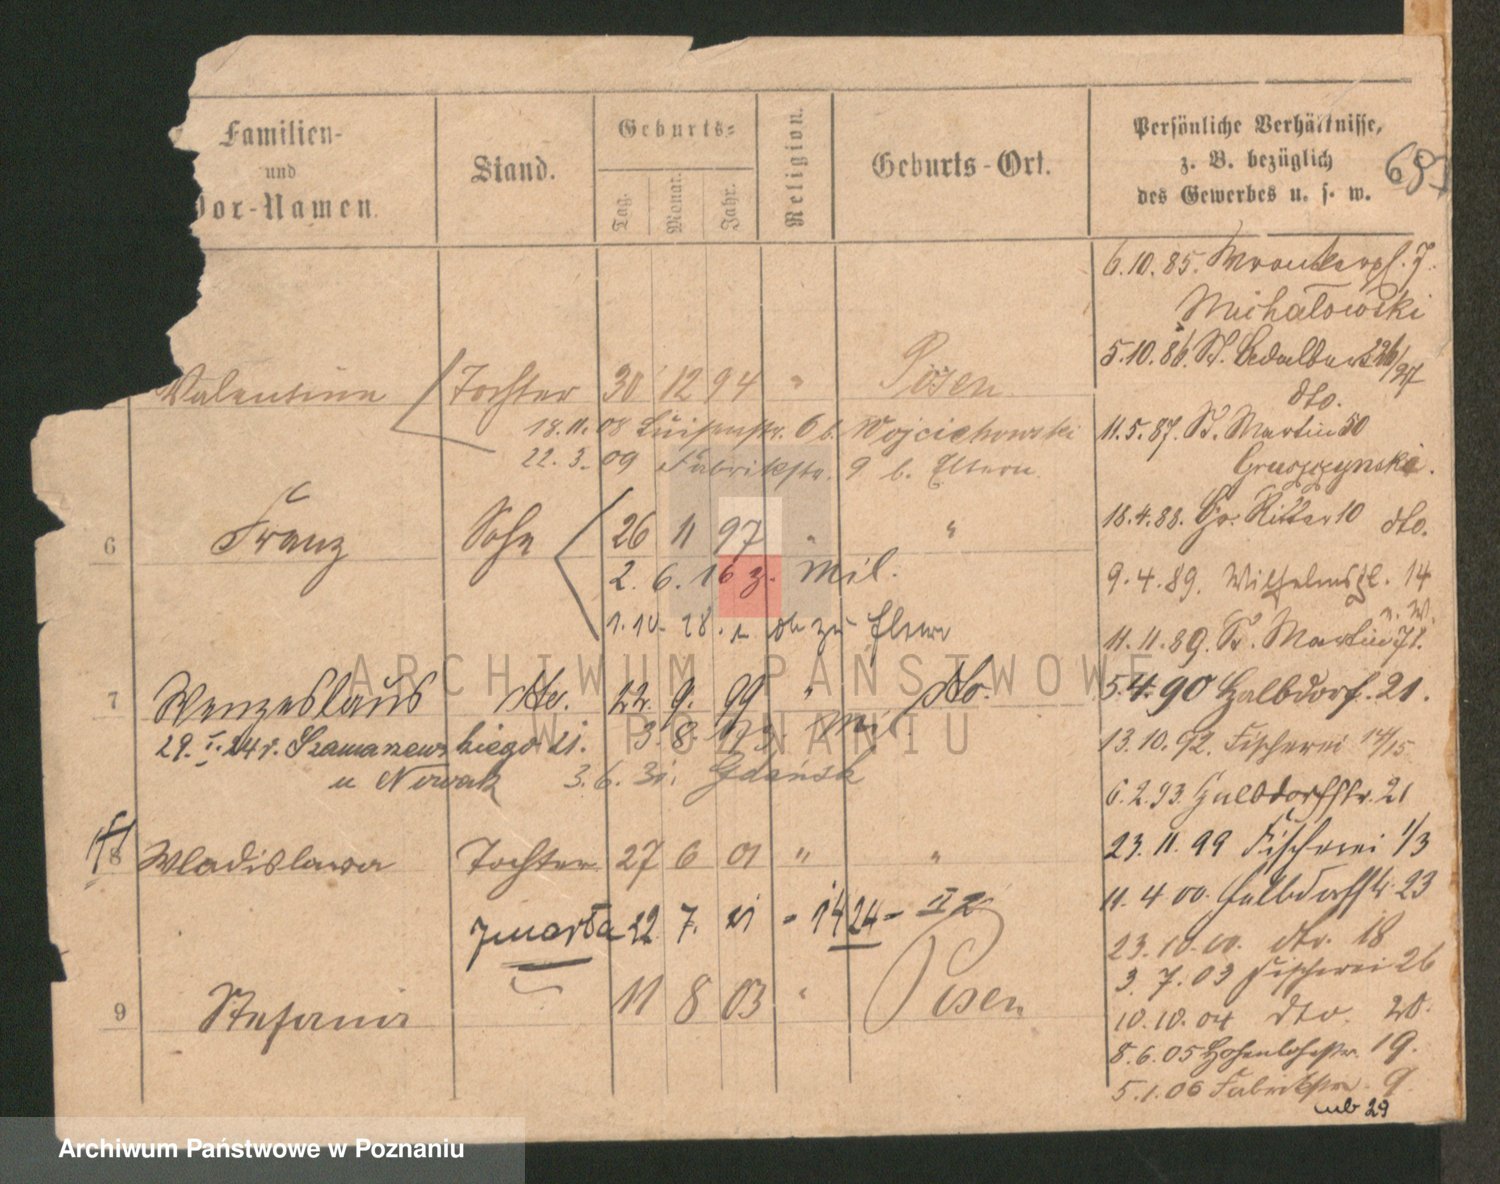 Familien-
und
Vor-Namen.
Stand.
Geburts-
Tag.
Monat.
Jahr.
Religion.
Geburts-Ort.
Persönliche Verhältnisse,
z. B. bezüglich
des Gewerbes u. s. w.
6.10.85.
Michałowski
5.10.86. St. Adalbert
dto.
Valentine Tochter 30 12 94 " Posen
18.11.08 Luisenstr. 6 b. Wojciechowski
22.3.09 Fabrikstr. 9 b. Eltern
11.5.87. St. Martin 50
Gruszczynski.
6 Franz Sohn 26 11 97 " "
2. 6. 16 z. Mil.
1.10. 18.
18.4.88. Gr. Ritter 10 dto.
9.4.89. Wilhelmspl. 14
11.11.89. St. Martin 71.
7 Wenzeslaus dto. 22. 9. 99 " dto.
29. I. 24 r. Szamarzewskiego 21.
u Nowak 3.6.31. Gdańsk
3. 8. Mil.
5.4.90 Halbdorf. 21.
13.10.92. Fischerei 14/15
6.2.93. Halbdorfstr. 21
8 Wladislawa Tochter 27 6 01 " "
zmarła 22. 7. 21 - 1424 - II 2
23.11.99 Fischerei 1/3
11.4.00. Halbdorfstr. 23
23.10.00. dto. 18
3.7.03 Fischerei 26
9 Stefania 11 8 03 " Posen
10.10.04 dto. 20.
8.6.05 Hohenlohestr. 19.
5.1.06 Fabrikstr. 9
29
ARCHIWUM PAŃSTWOWE
W POZNANIU
Archiwum Państwowe w Poznaniu